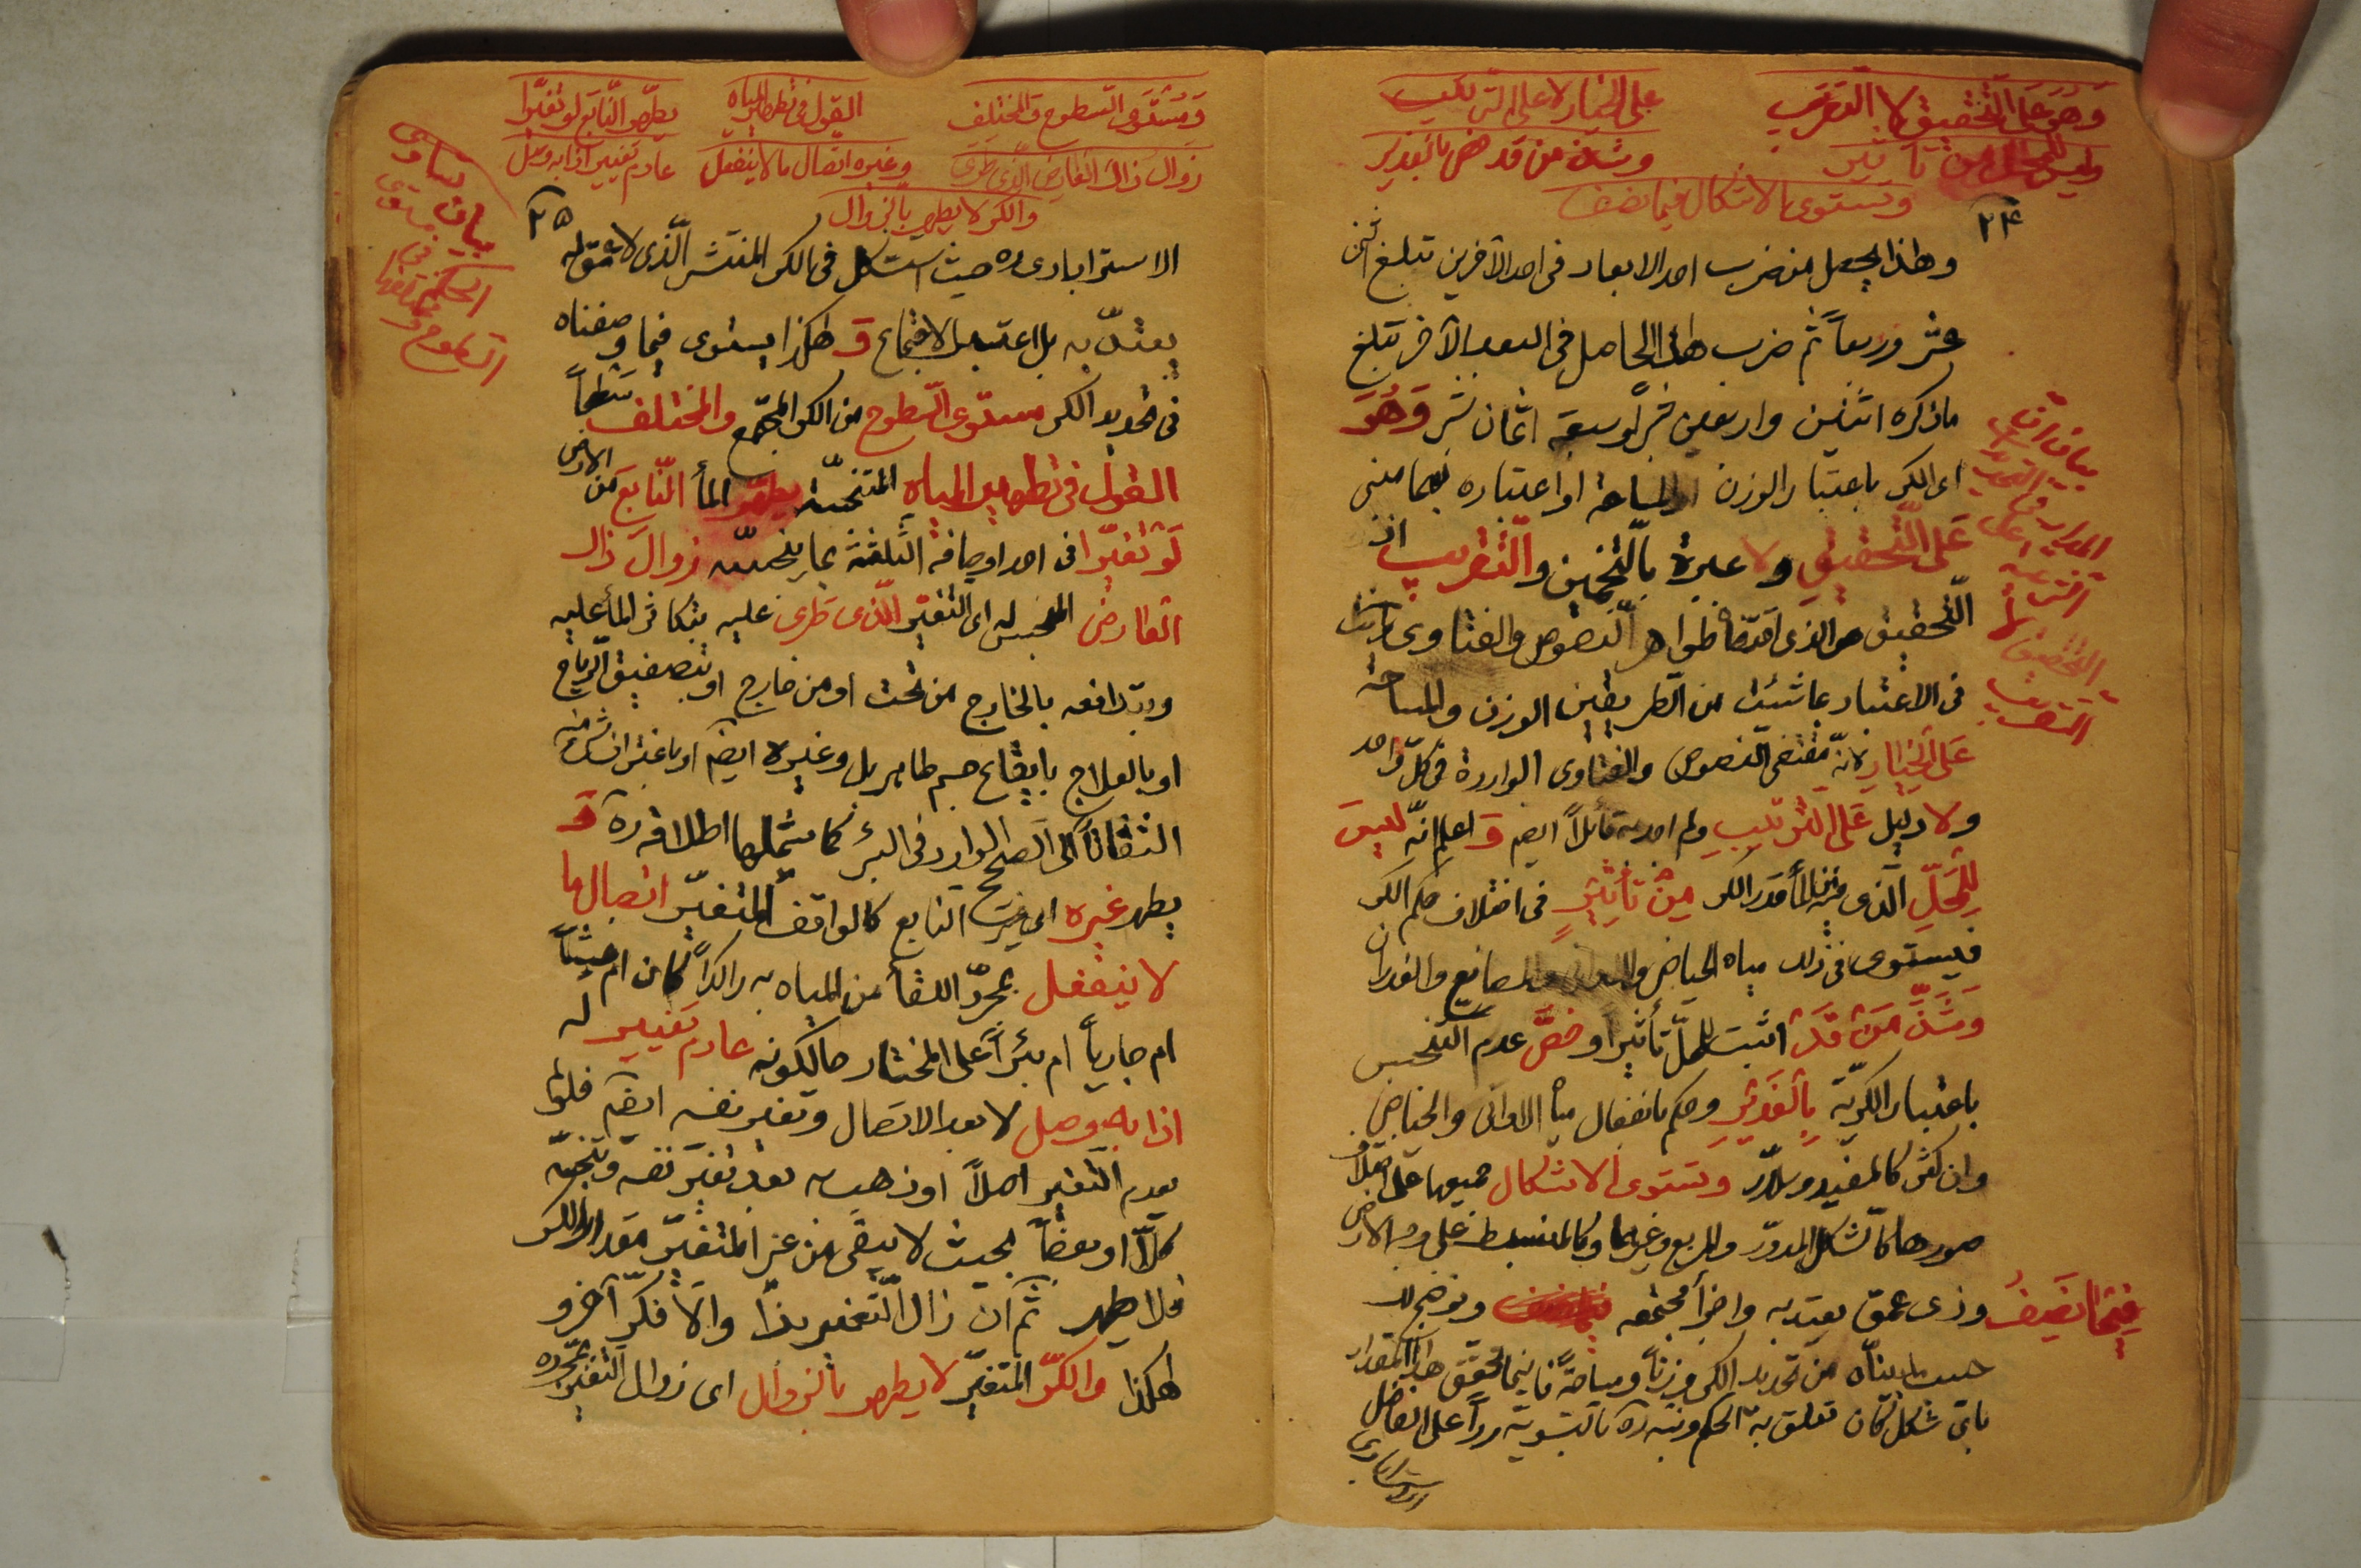 وهو على التحقيق لا التقريب
على الخيار لا على الترتيب
وليس للمحل من تاثير
وشذ من قد خص بالغدير
وتستوى الاشكال فيما نصف
۲۴
وهذا يحصل من ضرب احد الابعاد فى احد الآخرين تبلغ اثنى
عشر وربعاً ثم ضرب هذا الحاصل فى البعد الآخر تبلغ
ماذكره اثنين واربعين شبراً وسبعة اثمان شبر وَهُوَ
اى الكر باعتبار الوزن او المساحة او اعتباره بهما مبنى
عَلى التَّحقيقِ ولا عبرة بالتّخمين والتّقريب اذ
التّحقيق هو الذى اقتضاه ظواهر النّصوص والفتاوى
فى الاعتبار بما شئت من الطريقين الوزن والمساحة
عَلى الخيارِ لانّه مقتضى النّصوص والفتاوى الواردة فى كلّ واحد
ولا دليل عَلى التّرتيبِ ولم اجد به قائلاً ايضم وَ اعلم انّه ليسَ
لِلمحَلِّ الّذى فيه المأ قدر الكر مِنْ تأثيرٍ فى اختلاف حكم الكر
فيستوى فى ذلك مياه الحياض والاوانى والمصانع والغدران
وَشَذَّ مَنْ قَدْ اثبت للمحلّ تأثيراً وخصَّ عدم التّنجس
باعتبار الكريّة بِالغَديرِ وحكم بانفعال مأ الاوانى والحياض
وان كثر كالمفيد وسلاّر وتستوى الاشكال جميعها على اختلاف
صورها كالشّكل المدوّر والمربع وغيرهما وكالمنبسط على وجه الارض
فيمَا نَصِفُ وذى عمق يعتدبه واجزأ مجتمعه وتوضح لك
حسب ما بيّناه من تحديد الكر وزناً ومساحةً فاينما تحقق هذا المقدار
باىّ شكل كان تعلق به الحكم ونبه ره بالتسوية ردّاً على الفاضل
الاسترابادى
بيان ان
التحديد
المدار فى
على
التحقيق
التقريب
ومستوى السّطوح والمختلف
القول فى تطهير المياه
يطهّر النّابع لو تغيّرا
زوال ذاك العارض الّذى طرى
وغيره اتصال ما لا ينفعل
عادم تغيير اذا به وصل
والكر لا يطهر بالزوال
۲۵
الاسترابادى ره حيث استشكل فى الكر المنتشر الّذى لا عمق له
يعتدّ به بل اعتبر الاجتماع وَ هكذا يستوى فيما وصفناه
فى تحديد الكر مستوى السّطوح من الكر المجتمع والمختلف سطحاً
القول فى تطهير المياه المتنجّسة يطهّر المأ النّابع من الارض
لَوْ تغيّرا فى احد اوصافه الثّلثة بما ينجسّه زوال ذاك
العارض المنجس له اى التغيّر الّذى طرى عليه بتكاثر المأ عليه
وبتدافعه بالخارج من تحت او من خارج او بتصفيق الرّياح
او بالعلاج بايقاع جسم طاهر بل وغيره ايضم
التفاتاً الى الصّحيح الوارد فى البئر كما يشملها اطلاقه ره وَ
يطهر غيره اى غير النابع كالواقف المتغيّر اتصال ما
لا ينفعل بمجرّد اللقأ من المياه به راكداً كان ام غيثاً
ام جارياً ام بئراً على المختار حالكونه عادم تغيير له
اذا به وصل لا بعد الاتصال وتغير نفسه ايضم فلو لم
يعدم التّغير اصلاً او ذهب به بعد تغيّر نفسه وتنجّسه
كلاًّ او بعضاً بحيث لا يبقى من غير المتغيّر مقدار الكر
فلا يطهر ثم ان زال التّغير بذا والاّ فكرّ آخر و
هكذا والكرّ المتغيّر لا يطهر بالزوال اى زوال التّغيّر بمجرّده
بيان تساوى
مستوى
فى
الحكم
السّطوح